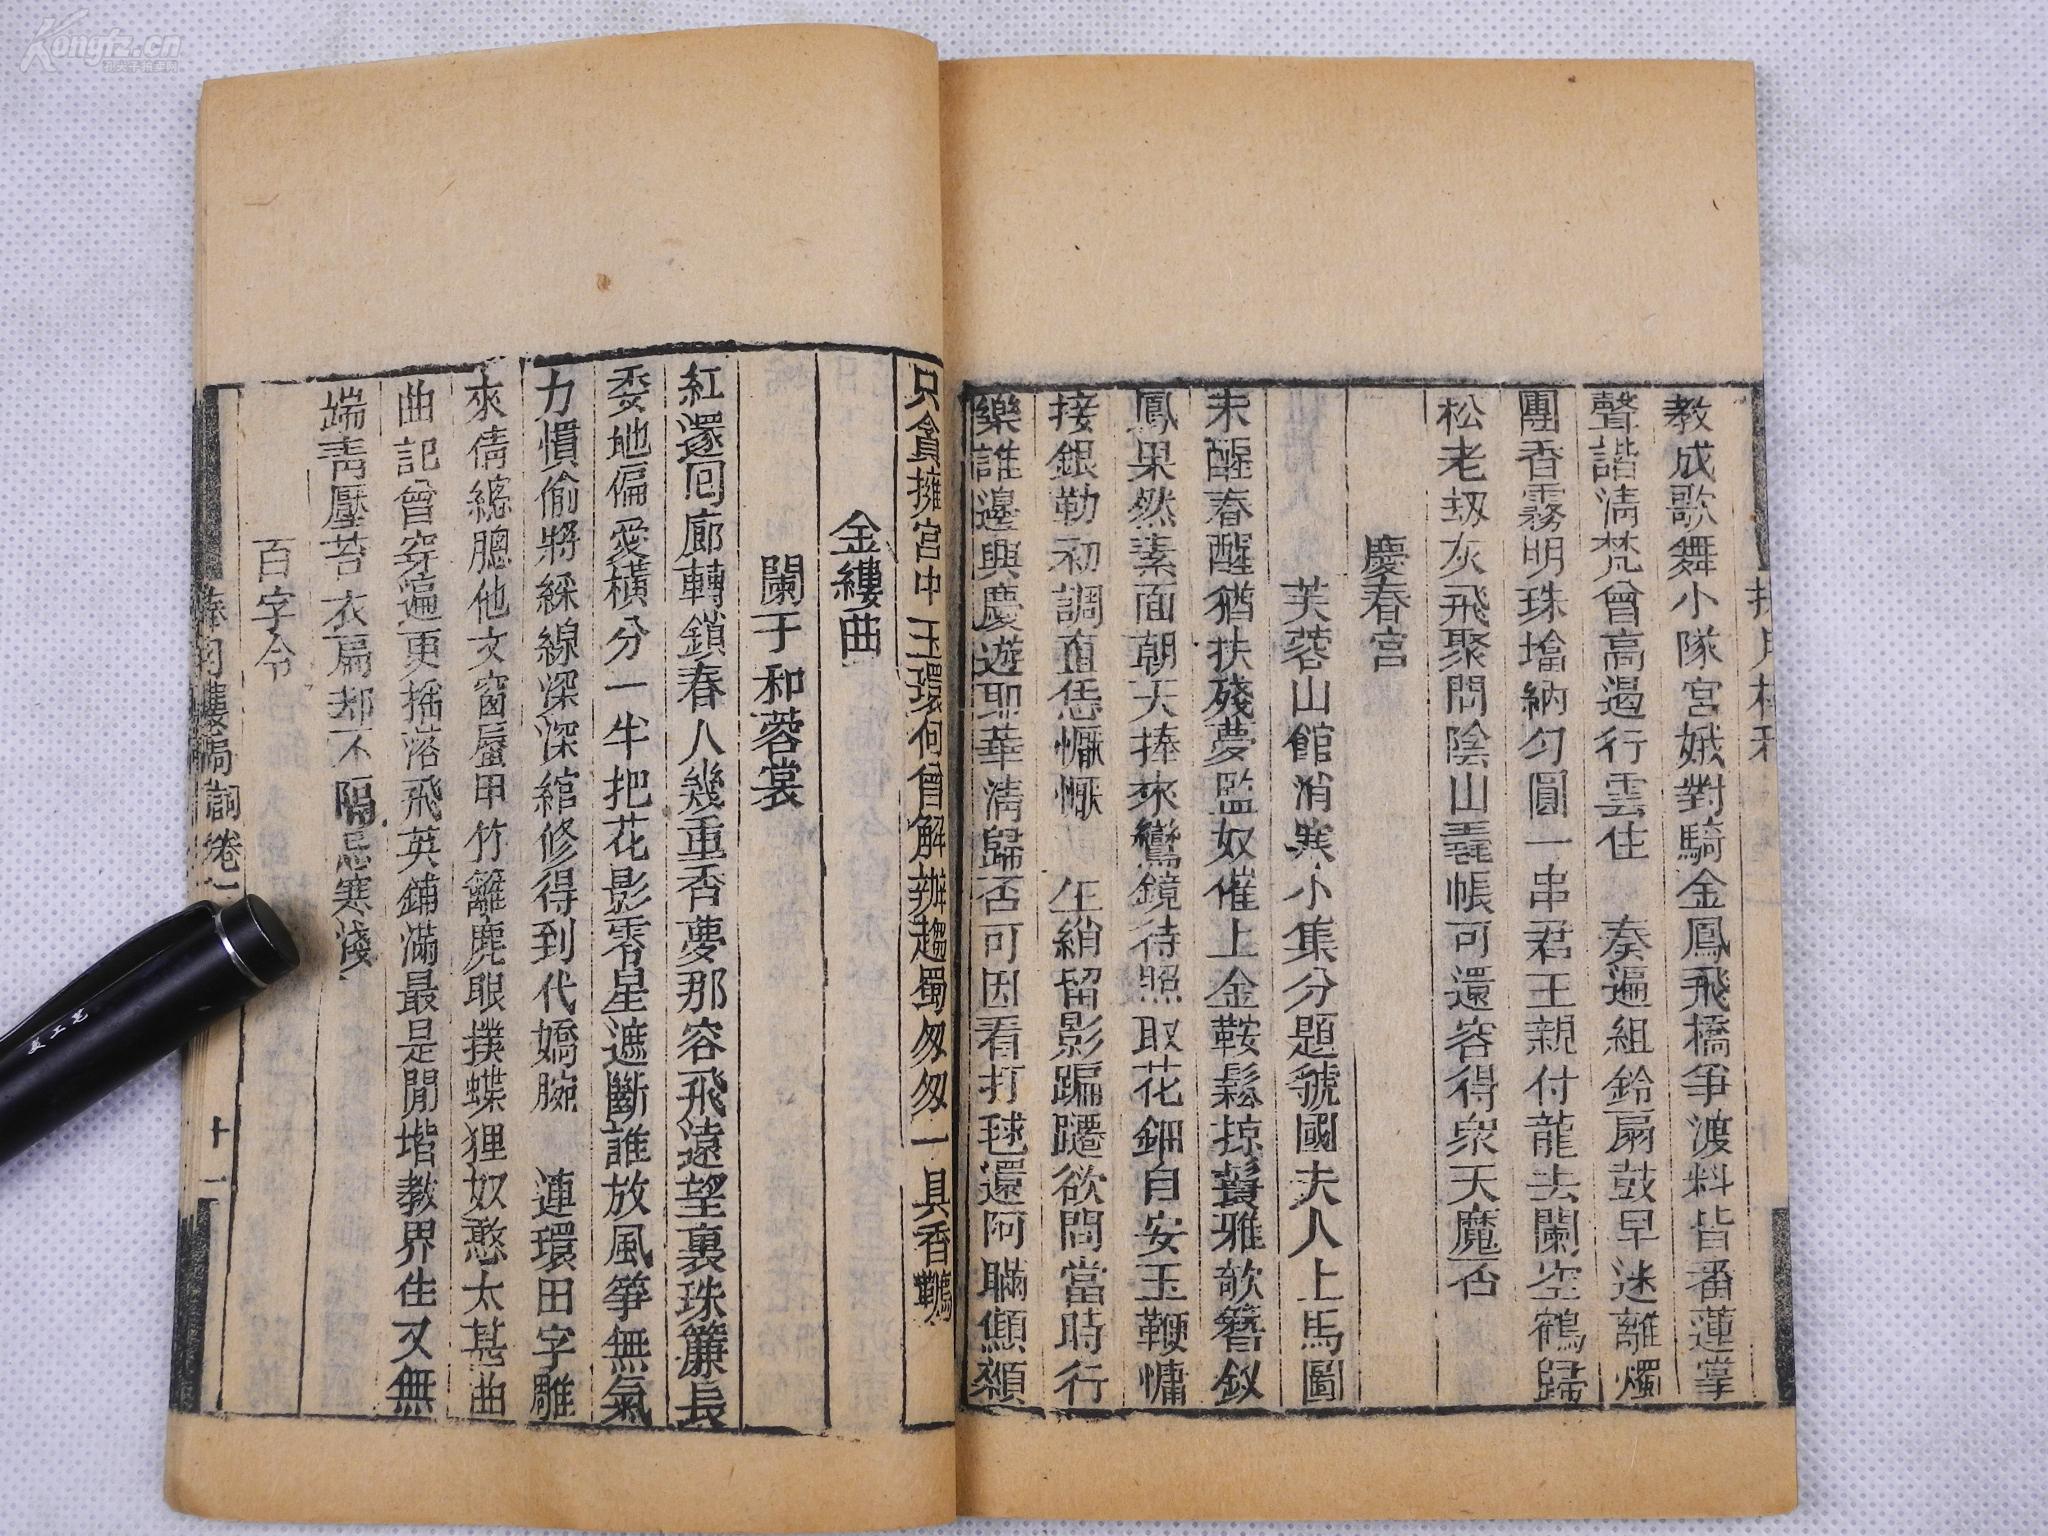 教成歌舞小隊宮娥對騎金鳳飛橋爭渡料皆番蓮掌
聲諧淸梵曾高遏行雲住　奏遍組鈴扇鼓早迷離燭
團香霧明珠壋納勻圓一串君王親付龍去闌空鶴歸
松老刼灰飛聚問陰山毳帳可還容得衆天魔否
慶春宮
芙蓉山館消寒小集分題虢國夫人上馬圖
未醒春醒猶扶殘夢監奴催上金鞍鬆掠鬟雅欹簪釵
鳳果然素面朝天捧來鸞鏡待照取花鈿自安玉鞭慵
接銀勒初調直恁懨懨　生綃留影蹁躚欲問當時行
樂誰邊興慶遊耶華淸歸否可因看打毬還阿瞞顚纇
只貪擁宮中玉環何曾解辦趨蜀匆匆一具香韉
金縷曲
闌干和蓉裳
紅還回廊轉鎖春人幾重香夢那容飛遠望裏珠簾長
委地偏愛橫分一半把花影零星遮斷誰放風箏無氣
力慣偷將綵線深深綰修得到代嬌腕　連環田字雕
來倩總聽他文窗蜃甲竹籬鹿眼撲蝶狸奴憨太甚曲
曲記曾穿遍更搖落飛英鋪滿最是閒堦教界住又無
端靑壓苔衣扁都不隔忌寒淺
百字令
詞卷一
十一
Kongfz.cn